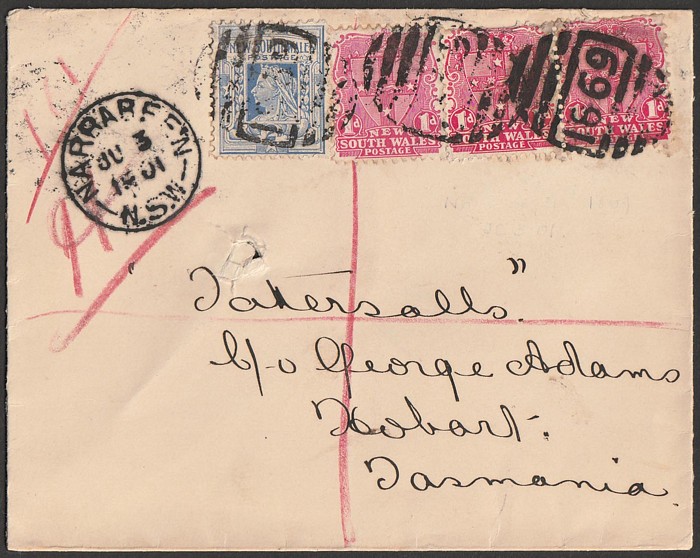 NEW SOUTH WALES
POSTAGE
1d 1d
NEW
SOUTH WALES
POSTAGE
1d 1d
NEW
SOUTH WALES
POSTAGE
1d
NEW
SOUTH WALES
POSTAGE
1699
NARRABEE'N
JU 3
1901
N.S.W
"Tattersalls"
C/-o George Adams
Hobart.
Tasmania.